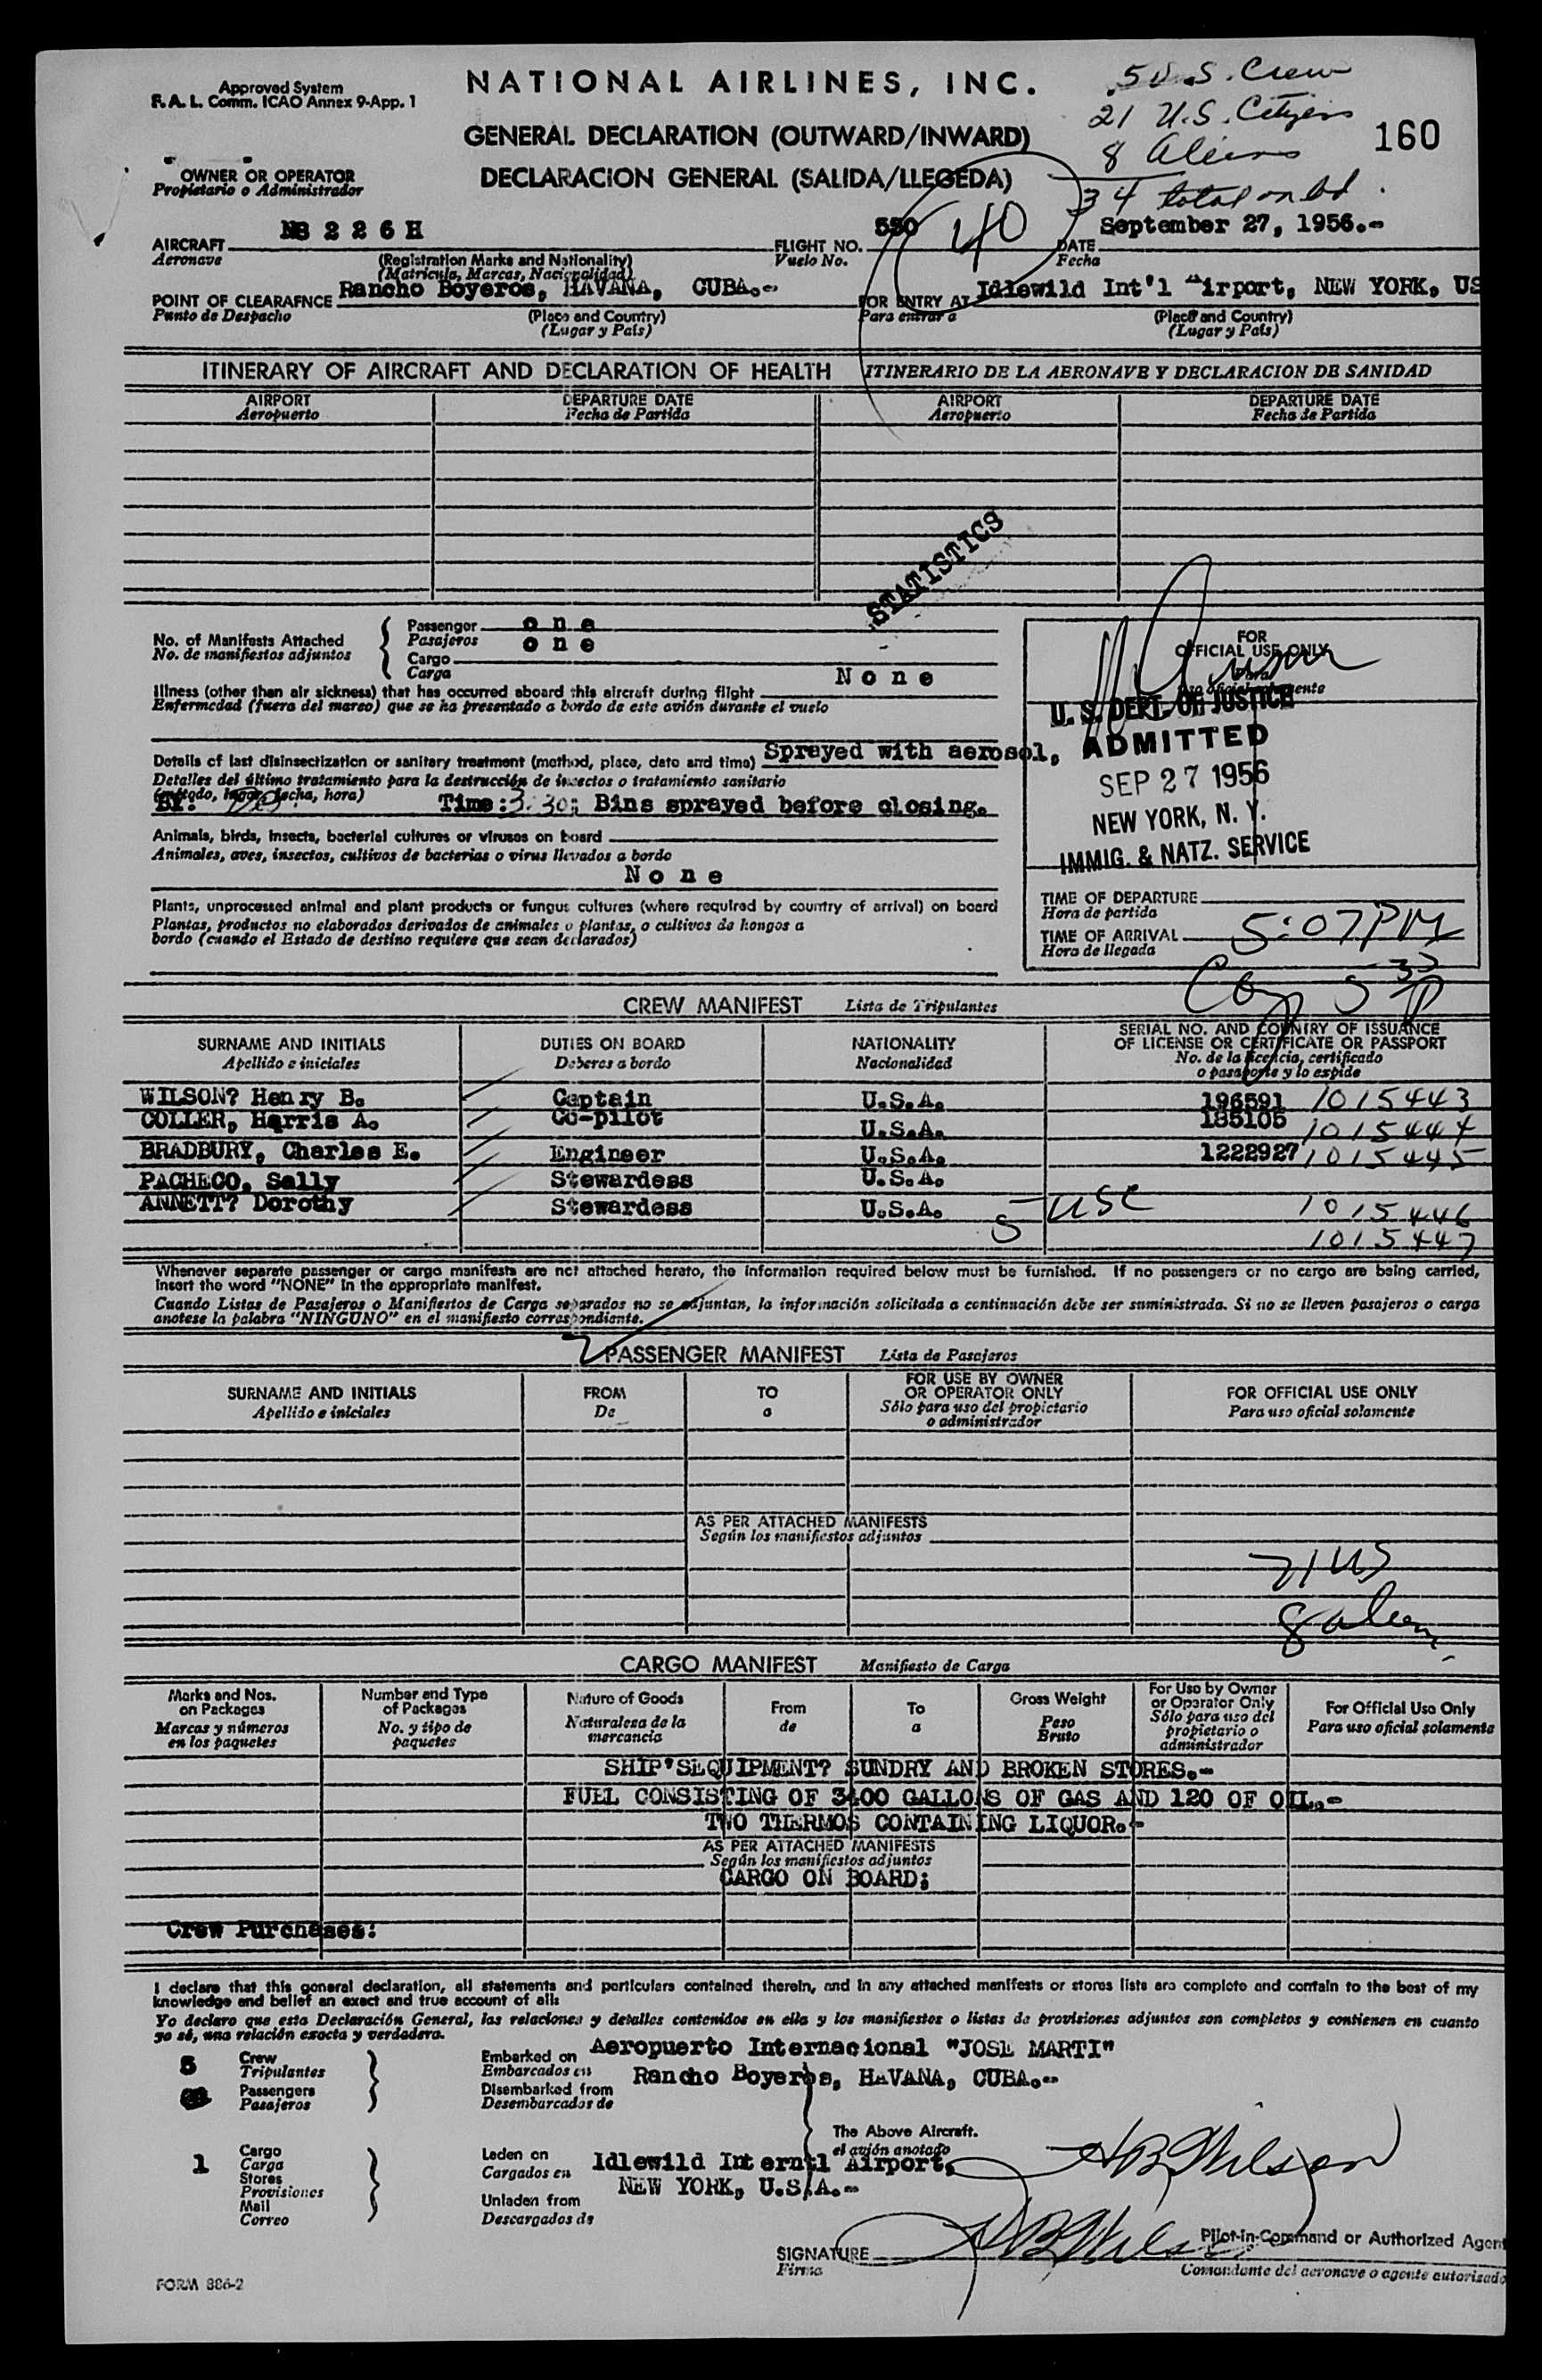 Approved System
F. A. L. Comm. ICAO Annex 9-App. 1
NATIONAL AIRLINES, INC.
5 U.S. Crew
21 U.S. Citizens
8 Aliens
34 total on bd.
160
GENERAL DECLARATION (OUTWARD/INWARD)
DECLARACION GENERAL (SALIDA/LLEGEDA)
OWNER OR OPERATOR
Propietario o Administrador
AIRCRAFT 226H FLIGHT NO. 550 40 DATE September 27, 1956.-
Aeronave (Registration Marks and Nationality) Vuelo No. Fecha
(Matricula, Marcas, Nacionalidad)
POINT OF CLEARAFNCE Rancho Boyeros, HAVANA, CUBA.- FOR ENTRY AT Idlewild Int'l Airport, NEW YORK, US
Punto de Despacho (Place and Country) Para entrar a (Place and Country)
(Lugar y País) (Lugar y País)
ITINERARY OF AIRCRAFT AND DECLARATION OF HEALTH ITINERARIO DE LA AERONAVE Y DECLARACION DE SANIDAD
AIRPORT DEPARTURE DATE AIRPORT DEPARTURE DATE
Aeropuerto Fecha de Partida Aeropuerto Fecha de Partida
STATISTICS
No. of Manifests Attached
No. de manifiestos adjuntos
Passenger one
Pasajeros one
Cargo
Carga
None
Illness (other than air sickness) that has occurred aboard this aircraft during flight
Enfermedad (fuera del mareo) que se ha presentado a bordo de este avión durante el vuelo
Details of last disinsectization or sanitary treatment (method, place, date and time) Sprayed with aerosol,
Detalles del último tratamiento para la destrucción de insectos o tratamiento sanitario
(método, lugar, fecha, hora)
BY: Time: 3:30; Bins sprayed before closing.
Animals, birds, insects, bacterial cultures or viruses on board
Animales, aves, insectos, cultivos de bacterias o virus llevados a bordo
None
Plants, unprocessed animal and plant products or fungus cultures (where required by country of arrival) on board
Plantas, productos no elaborados derivados de animales o plantas, o cultivos de hongos a
bordo (cuando el Estado de destino requiere que sean declarados)
FOR
OFFICIAL USE ONLY
Para
uso oficial solamente
U. S. DEPT. OF JUSTICE
ADMITTED
SEP 27 1956
NEW YORK, N. Y.
IMMIG. & NATZ. SERVICE
TIME OF DEPARTURE
Hora de partida
TIME OF ARRIVAL 5:07PM
Hora de llegada
CREW MANIFEST Lista de Tripulantes
SURNAME AND INITIALS DUTIES ON BOARD NATIONALITY SERIAL NO. AND COUNTRY OF ISSUANCE
OF LICENSE OR CERTIFICATE OR PASSPORT
Apellido e iniciales Deberes a bordo Nacionalidad No. de la licencia, certificado
o pasaporte y lo expide
WILSON? Henry B. Captain U.S.A. 196591 1015443
COLLER, Harris A. Co-pilot U.S.A. 185105 1015444
BRADBURY, Charles E. Engineer U.S.A. 1222927 1015445
PACHECO, Sally Stewardess U.S.A.
ANNETT? Dorothy Stewardess U.S.A. 5 USC 1015446
1015447
Whenever separate passenger or cargo manifests are not attached hereto, the information required below must be furnished. If no passengers or no cargo are being carried,
insert the word "NONE" in the appropriate manifest.
Cuando Listas de Pasajeros o Manifiestos de Carga separados no se adjuntan, la información solicitada a continuación debe ser suministrada. Si no se lleven pasajeros o carga
anotese la palabra "NINGUNO" en el manifiesto correspondiente.
PASSENGER MANIFEST Lista de Pasajeros
SURNAME AND INITIALS FROM TO FOR USE BY OWNER
OR OPERATOR ONLY FOR OFFICIAL USE ONLY
Apellido e iniciales De a Sólo para uso del propietario
o administrador Para uso oficial solamente
AS PER ATTACHED MANIFESTS
Según los manifiestos adjuntos
21 US
8 alien
CARGO MANIFEST Manifiesto de Carga
Marks and Nos.
on Packages
Marcas y números
en los paquetes
Number and Type
of Packages
No. y tipo de
paquetes
Nature of Goods
Naturaleza de la
mercancia
From
de
To
a
Gross Weight
Peso
Bruto
For Use by Owner
or Operator Only
Sólo para uso del
propietario o
administrador
For Official Use Only
Para uso oficial solamente
SHIP'SEQUIPMENT? SUNDRY AND BROKEN STORES.-
FUEL CONSISTING OF 3400 GALLONS OF GAS AND 120 OF OIL.-
TWO THERMOS CONTAINING LIQUOR.-
AS PER ATTACHED MANIFESTS
Según los manifiestos adjuntos
CARGO ON BOARD;
Crew Purchases:
I declare that this general declaration, all statements and particulars contained therein, and in any attached manifests or stores lists are complete and contain to the best of my
knowledge and belief an exact and true account of all:
Yo declaro que esta Declaración General, las relaciones y detalles contenidos en ella y los manifiestos o listas de provisiones adjuntos son completos y contienen en cuanto
yo sé, una relación exacta y verdadera.
5 Crew
Tripulantes
Passengers
Pasajeros
Embarked on Aeropuerto Internacional "JOSE MARTI"
Embarcados en Rancho Boyeros, HAVANA, CUBA.--
Disembarked from
Desembarcados de
The Above Aircraft.
el avión anotado
1 Cargo
Carga
Stores
Provisiones
Mail
Correo
Laden on Idlewild Interntl Airport,
Cargados en NEW YORK, U.S.A.--
Unladen from
Descargados de
HBWilson
SIGNATURE HBWilson Pilot-in-Command or Authorized Agent
Firma Comandante del aeronave o agente autorizado
FORM 886-2